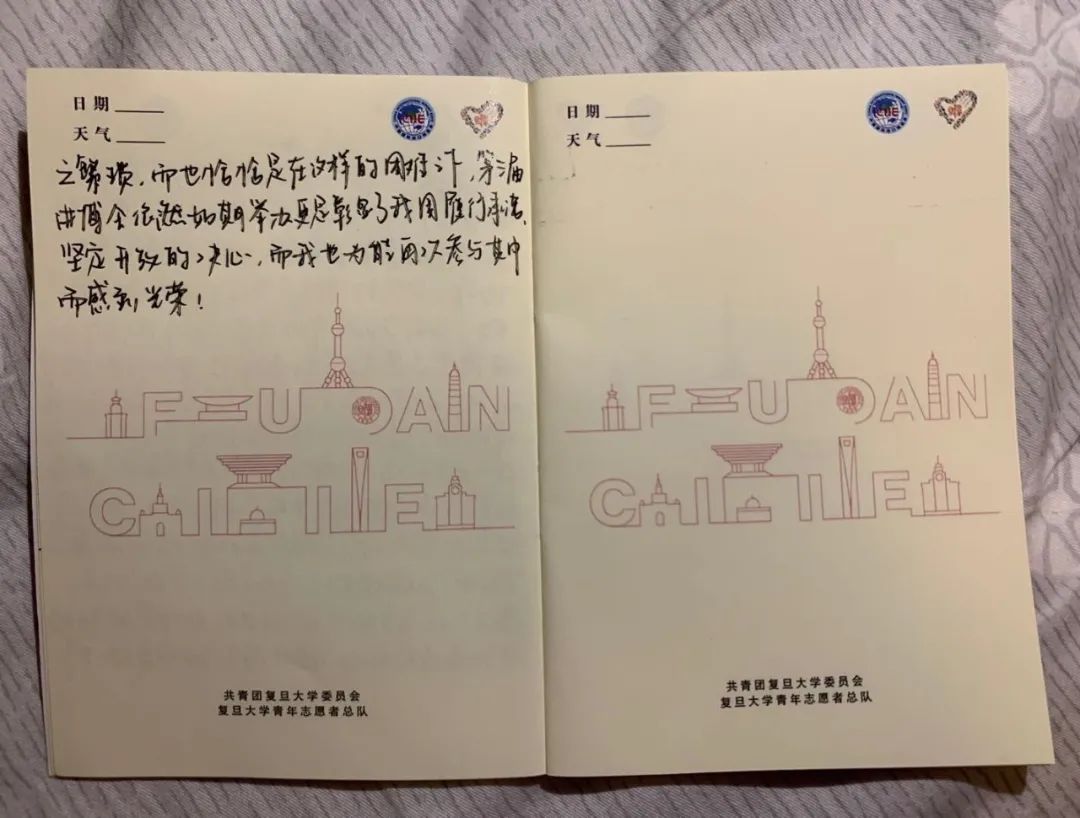 日期
天气
CIIE
之繁琐，而也恰恰是在这样的困难下，第三届
进博会依然如期举办更是彰显了我国履行承诺、
坚定开放的决心，而我也为能再次参与其中
而感到光荣！
FUDAN
CIIE
共青团复旦大学委员会
复旦大学青年志愿者总队
日期
天气
CIIE
FUDAN
CIIE
共青团复旦大学委员会
复旦大学青年志愿者总队